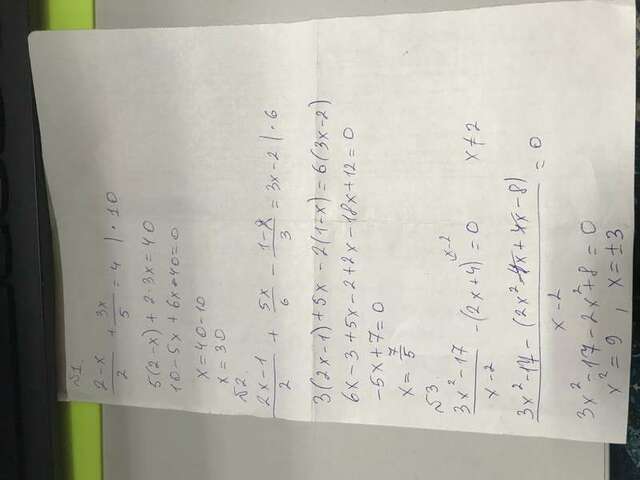 №1.
(2-x)/2 + 3x/5 = 4 | · 10
5(2-x) + 2·3x = 40
10-5x + 6x-40=0
x = 40-10
x = 30
№2.
(2x-1)/2 + 5x/6 - (1-x)/3 = 3x-2 | · 6
3(2x-1)+5x - 2(1-x) = 6(3x-2)
6x-3+5x-2+2x-18x+12=0
-5x+7=0
x = 7/5
№3
x-2
(3x²-17)/(x-2) - (2x+4) = 0 x≠2
(3x²-17-(2x²-4x+4x-8))/(x-2) = 0
3x²-17-2x²+8=0
x²=9, x=±3